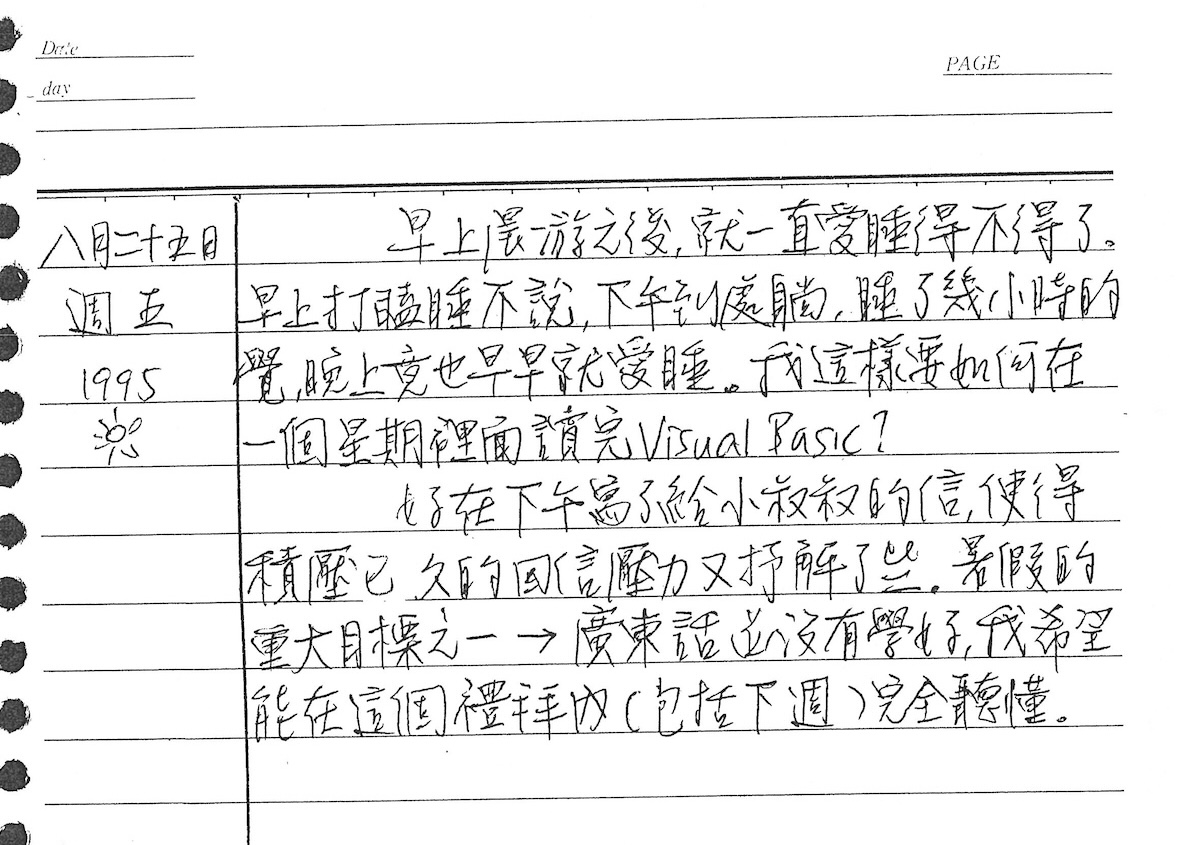 Date
PAGE
day
八月二十五日
週五
1995
早上晨游之後,就一直愛睡得不得了。
早上打瞌睡不說,下午到處躺,睡了幾小時的
覺,晚上竟也早早就愛睡。我這樣要如何在
一個星期裡面讀完Visual Basic?
好在下午寫了給小叔叔的信,使得
積壓已久的回信壓力又抒解了些。暑假的
重大目標之一→廣東話並沒有學好,我希望
能在這個禮拜內(包括下週)完全聽懂。